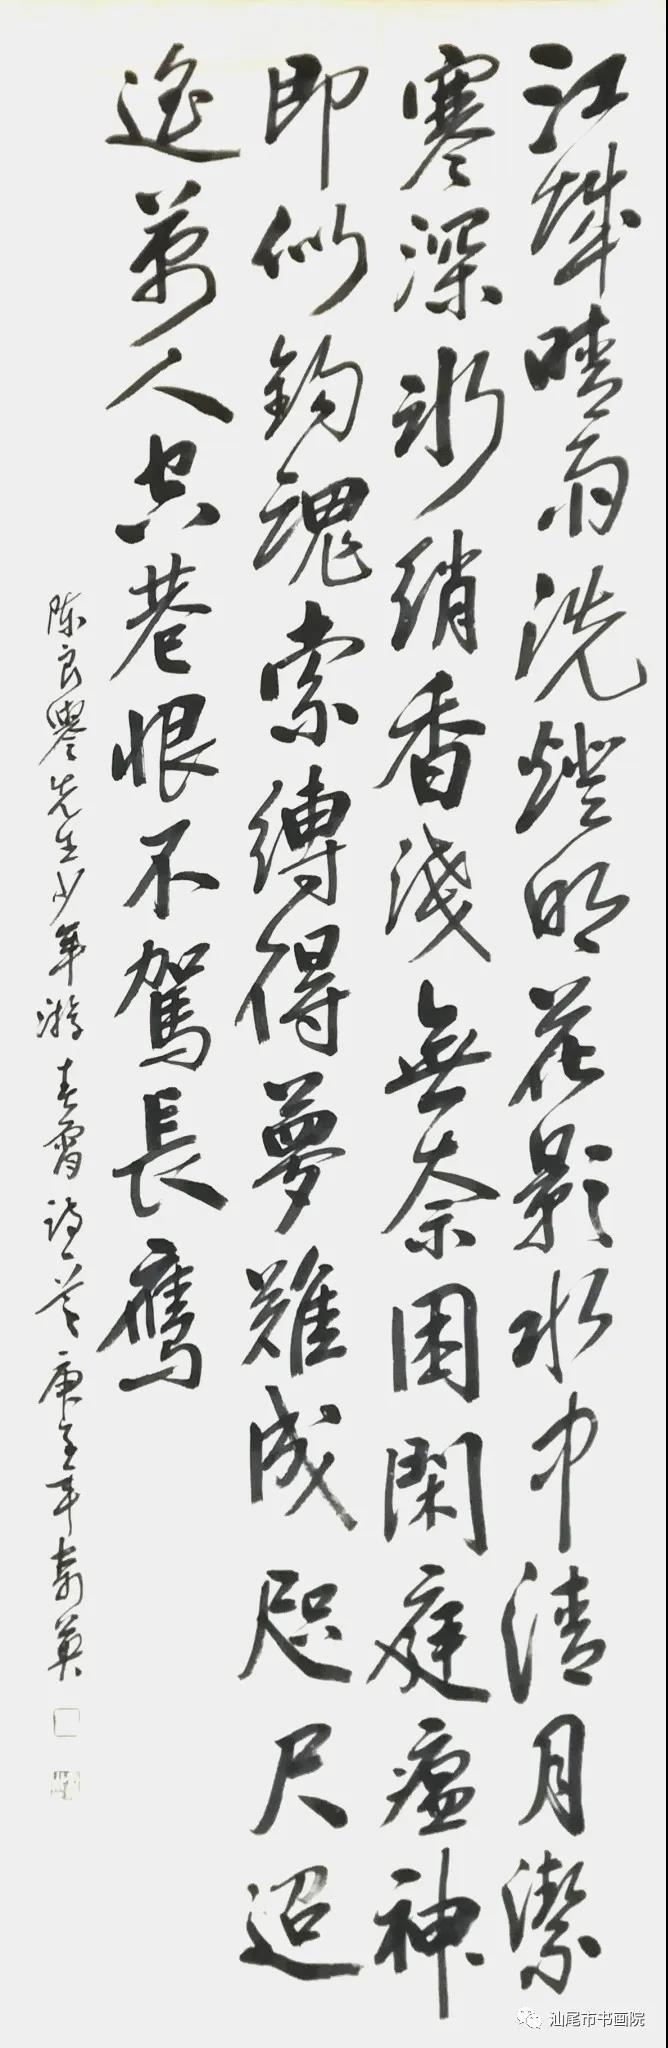 江城晴雨洗燈明花影水中清月潔
寒深冰綃香淺無奈困閑庭瘟神
即似鈎魂索縛得夢難成咫尺迢
遥萬人空巷恨不駕長鷹
陈良譽先生少年游春宵詩一首庚子年秀英
汕尾市书画院